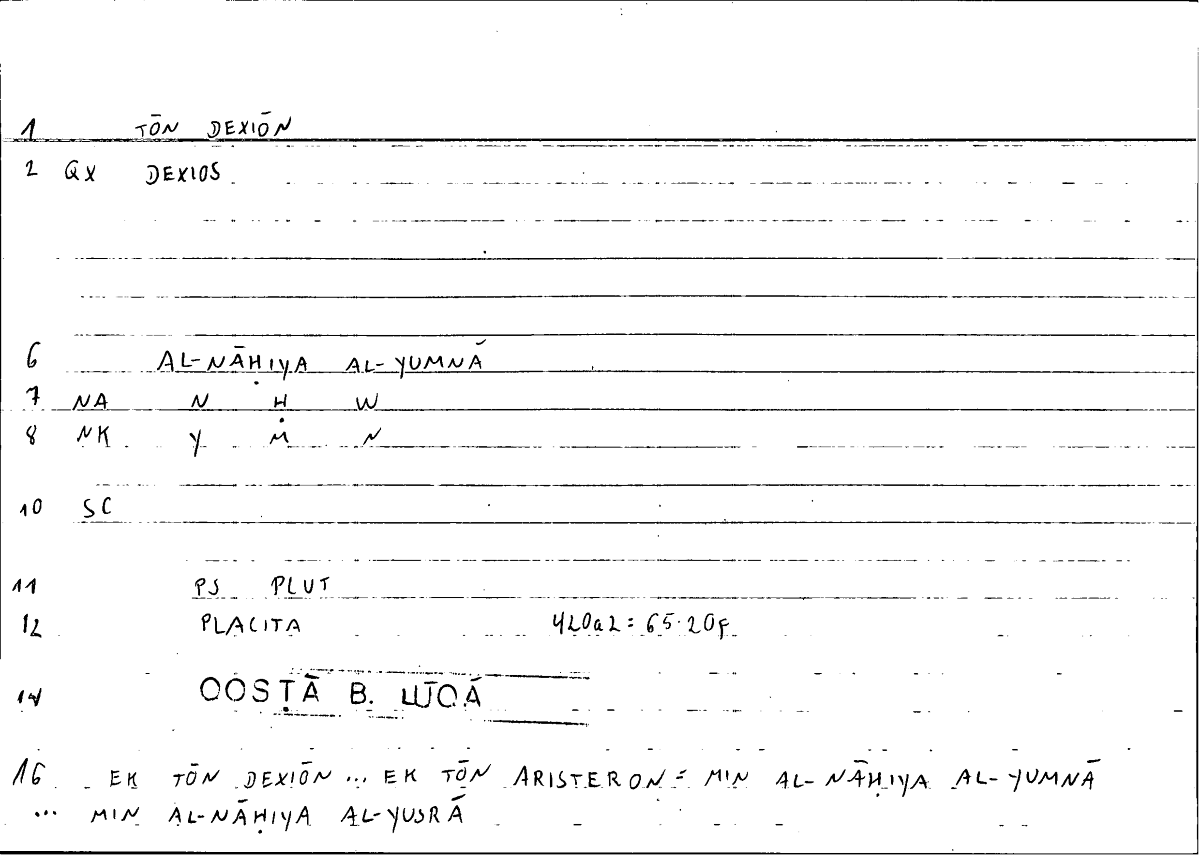 1 TŌN DEXIŌN
2 QX DEXIOS
6 AL-NĀḤIYA AL-YUMNĀ
7 NA N Ḥ W
8 NK Y M N
10 SC
11 PS PLUT
12 PLACITA 420a2 = 65.20f
14 QOSṬĀ B. LŪQĀ
16 EK TŌN DEXIŌN ... EK TŌN ARISTERON = MIN AL-NĀḤIYA AL-YUMNĀ
... MIN AL-NĀḤIYA AL-YUSRĀ